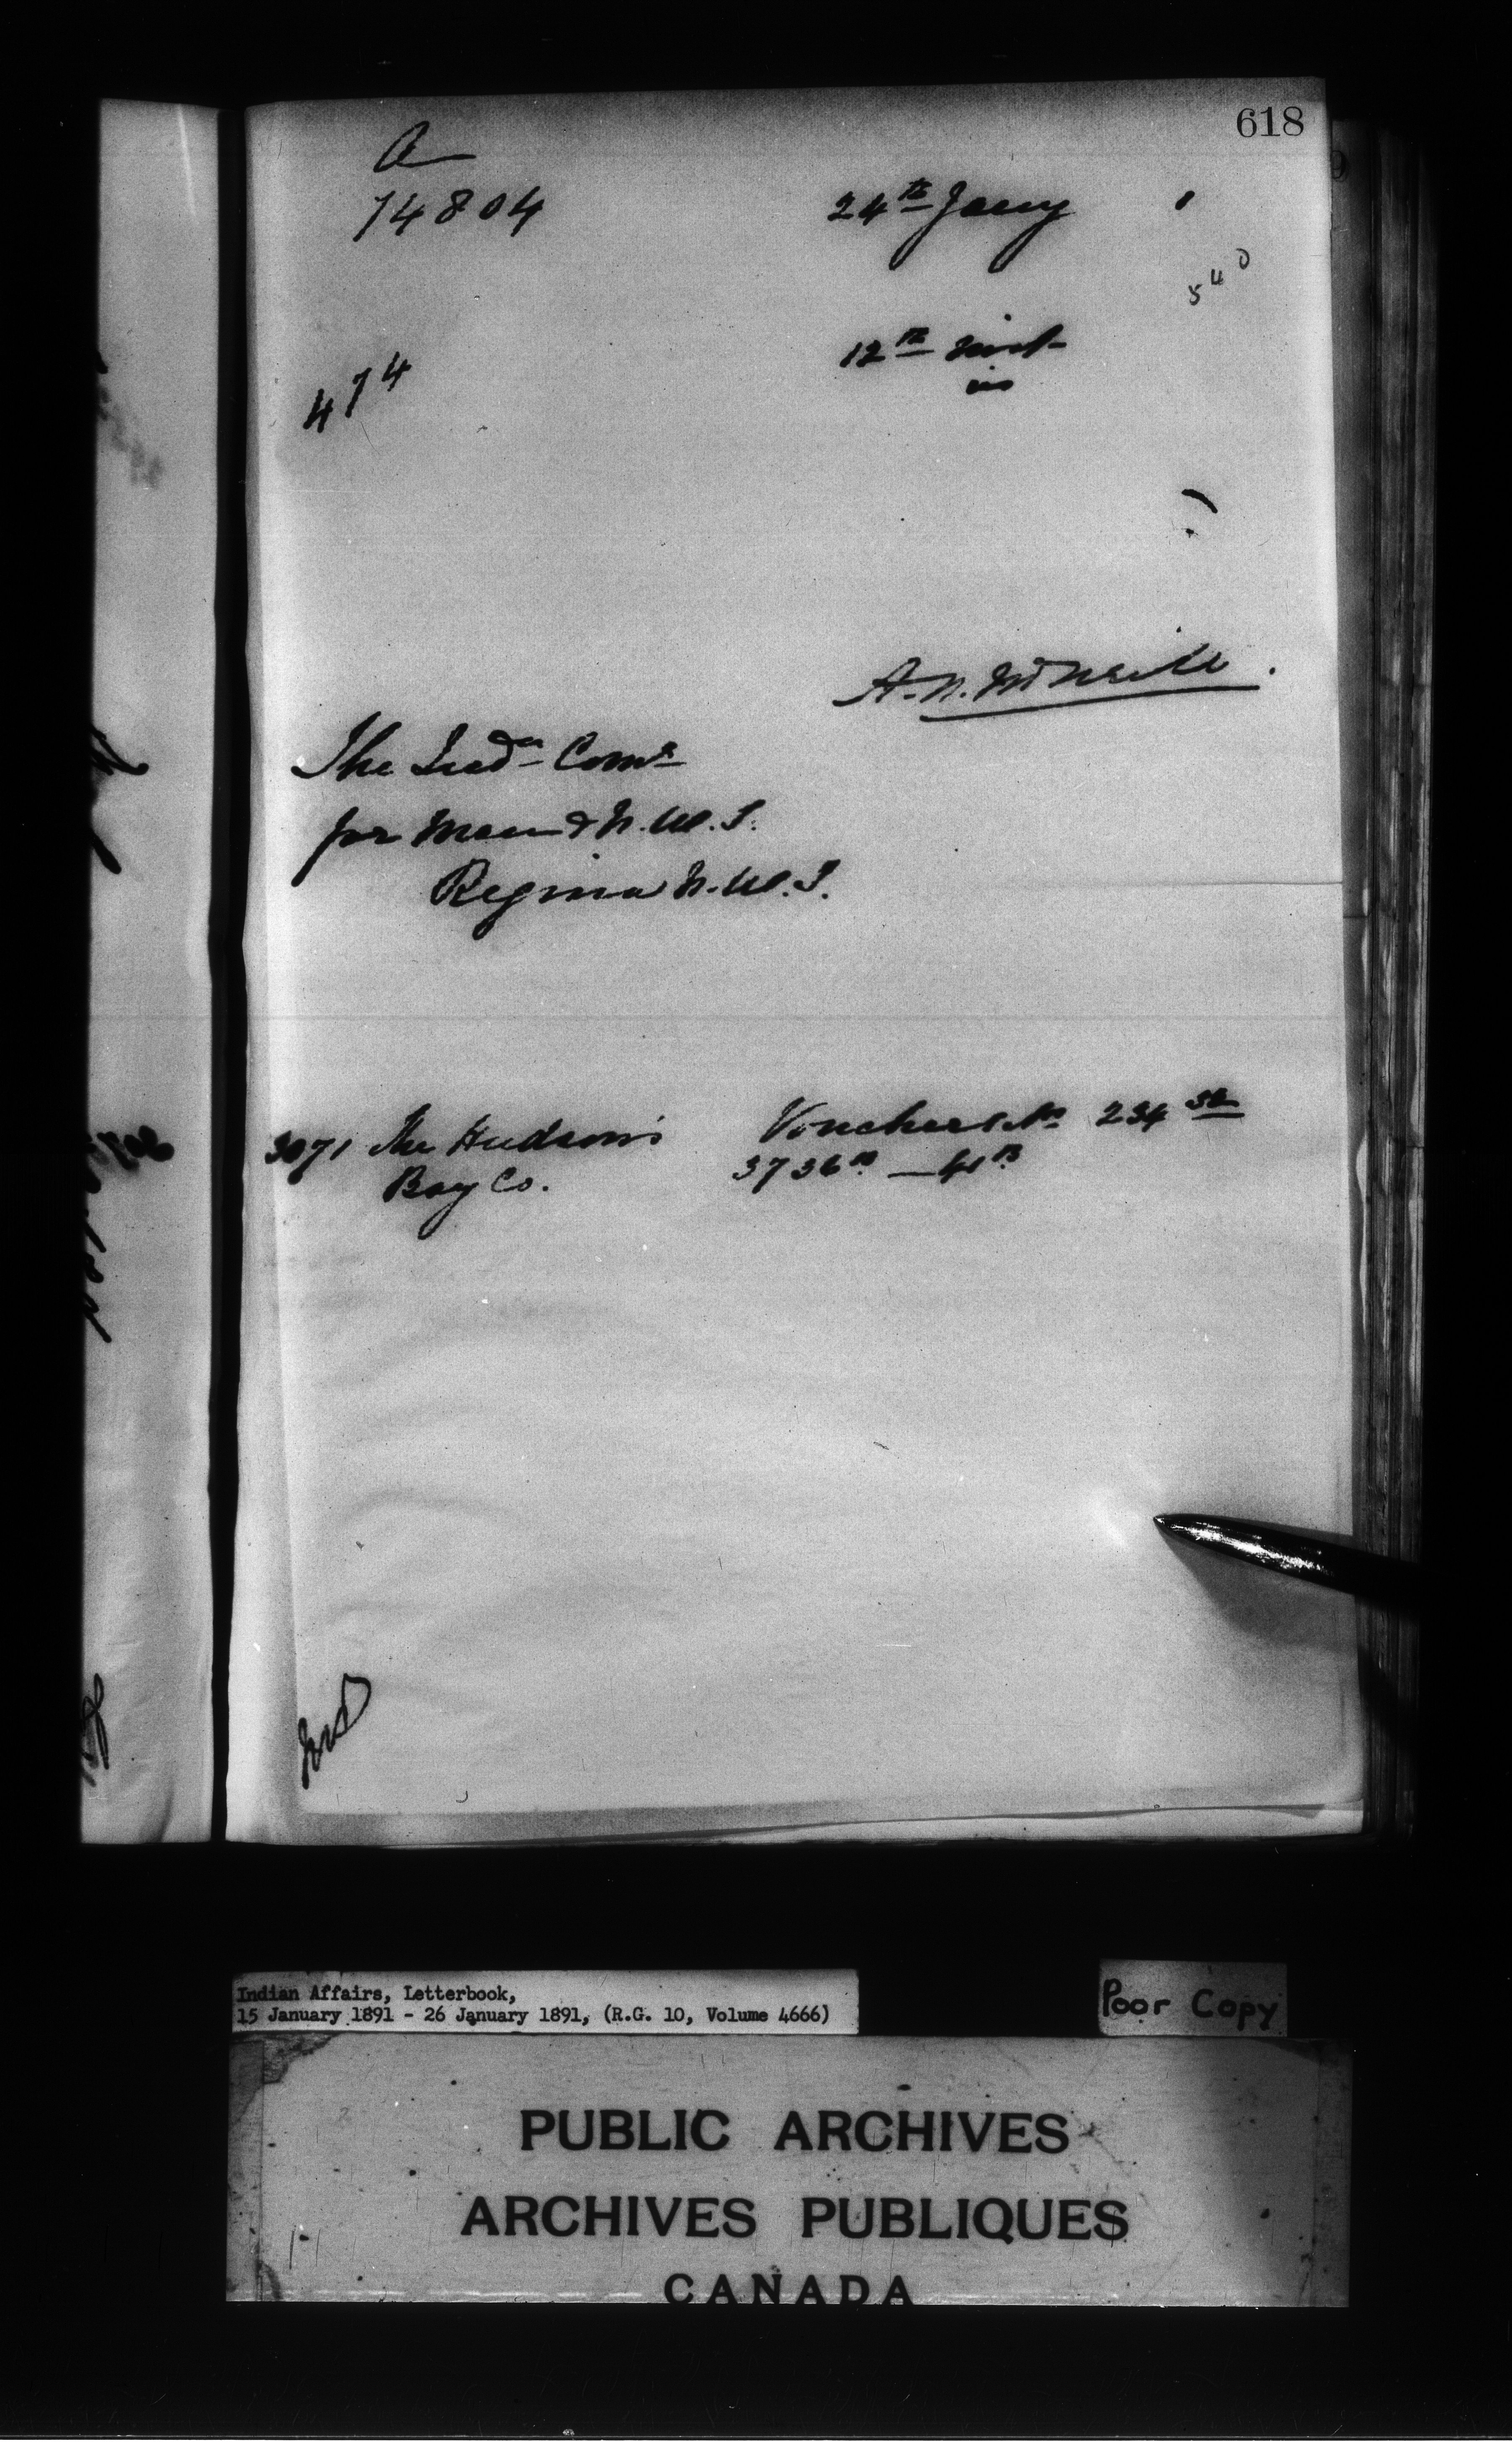 618
A
74804
24th Jany
540
12th inst
474
A. N. McNeill.
The Indn Comr
for Man & N.W.T.
Regina N.W.T.
3071 The Hudson's Vouchers No 234
Bay Co. 3736
Indian Affairs, Letterbook,
15 January 1891 - 26 January 1891, (R.G. 10, Volume 4666)
Poor Copy
PUBLIC ARCHIVES
ARCHIVES PUBLIQUES
CANADA